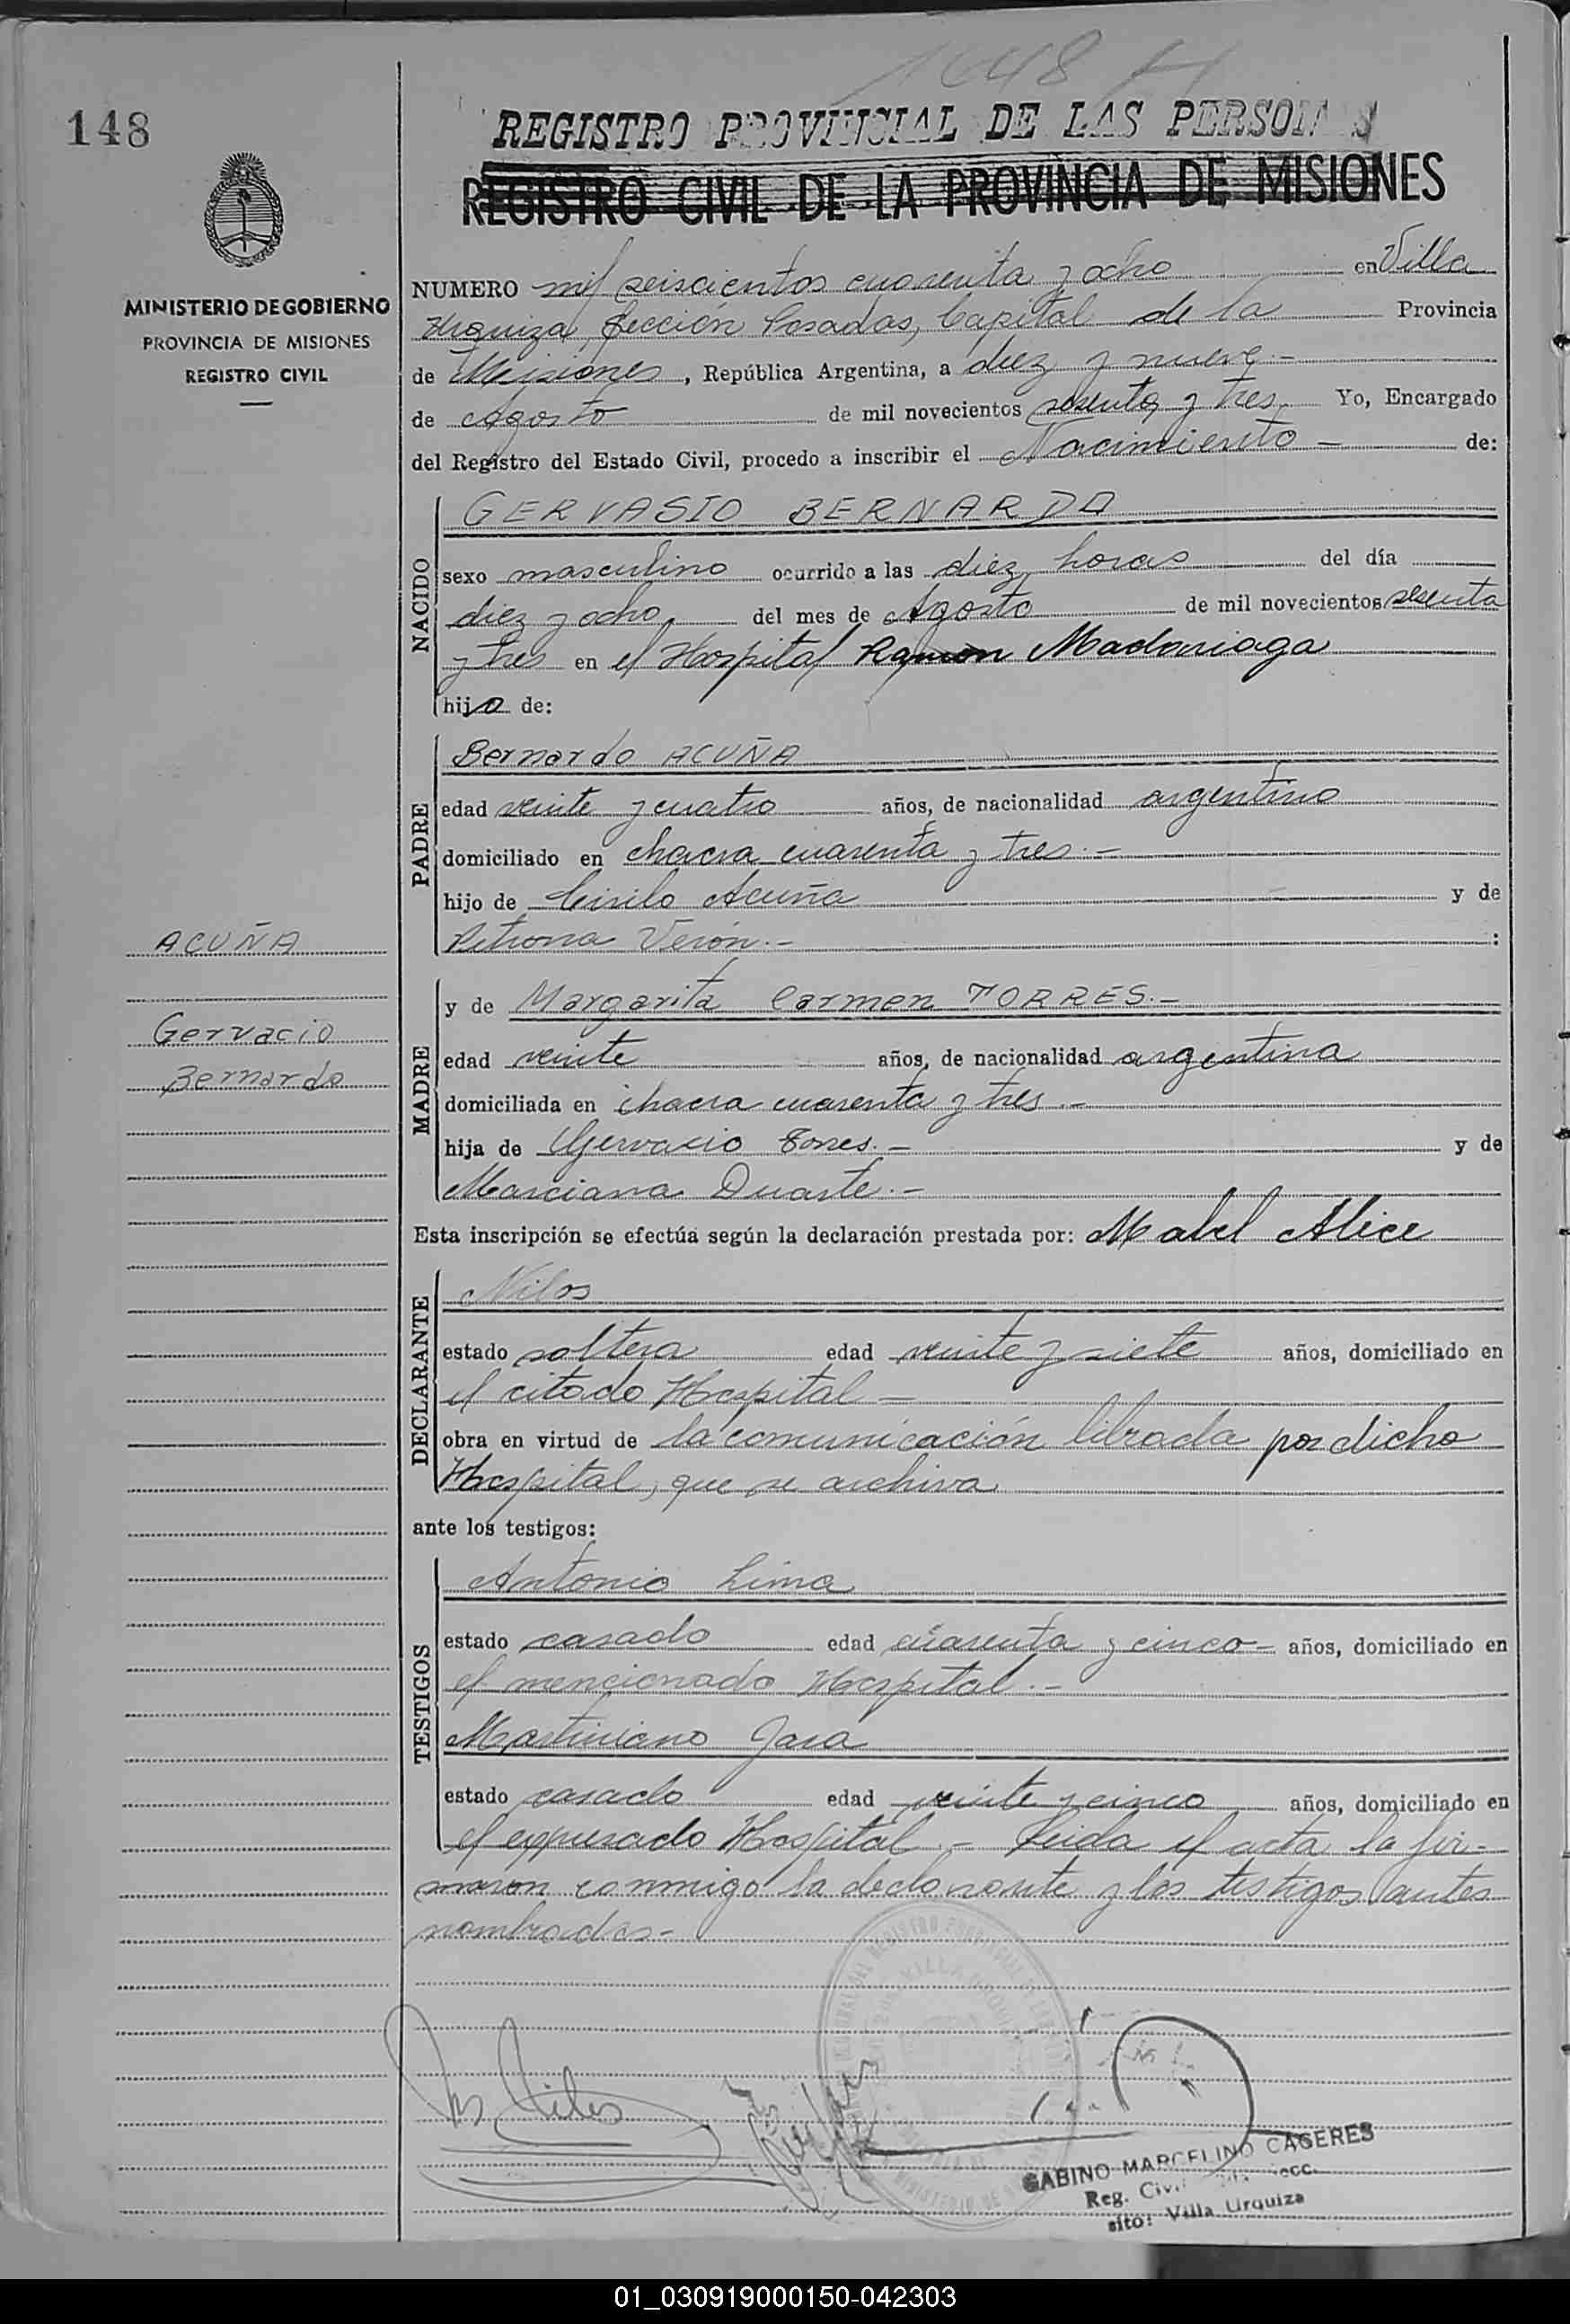 1648 H
148
REGISTRO PROVINCIAL DE LAS PERSONAS
REGISTRO CIVIL DE LA PROVINCIA DE MISIONES
MINISTERIO DE GOBIERNO
PROVINCIA DE MISIONES
REGISTRO CIVIL
NUMERO mil seiscientos cuarenta y ocho en Villa
Urquiza, Sección Posadas, Capital de la Provincia
de Misiones, República Argentina, a diez y nueve.-
de Agosto de mil novecientos sesenta y tres. Yo, Encargado
del Registro del Estado Civil, procedo a inscribir el Nacimiento - de:
NACIDO
GERVASIO BERNARDO
sexo masculino ocurrido a las diez horas del día
diez y ocho del mes de Agosto de mil novecientos sesenta
y tres en el Hospital Ramon Madariaga
hijo de:
PADRE
Bernardo ACUÑA
edad veinte y cuatro años, de nacionalidad argentino
domiciliado en chacra cuarenta y tres.-
hijo de Cirilo Acuña y de
Petrona Verón.- :
ACUÑA
Gervacio
Bernardo
MADRE
y de Margarita Carmen TORRES.-
edad veinte años, de nacionalidad argentina
domiciliada en chacra cuarenta y tres.-
hija de Gervacio Torres.- y de
Marciana Duarte.-
Esta inscripción se efectúa según la declaración prestada por: Mabel Alice
DECLARANTE
Nilos
estado soltera edad veinte y siete años, domiciliado en
el citado Hospital -
obra en virtud de la comunicación librada por dicho
Hospital, que se archiva
ante los testigos:
TESTIGOS
Antonio Lima
estado casado edad cuarenta y cinco - años, domiciliado en
el mencionado Hospital.-
Martiniano Jara
estado casado edad veinte y cinco años, domiciliado en
el expresado Hospital.- Leida el acta la fir-
maron conmigo la declarante y los testigos antes
nombrados-
GABINO MARCELINO CACERES
Reg. Civil Secc.
sito: Villa Urquiza
01_030919000150-042303